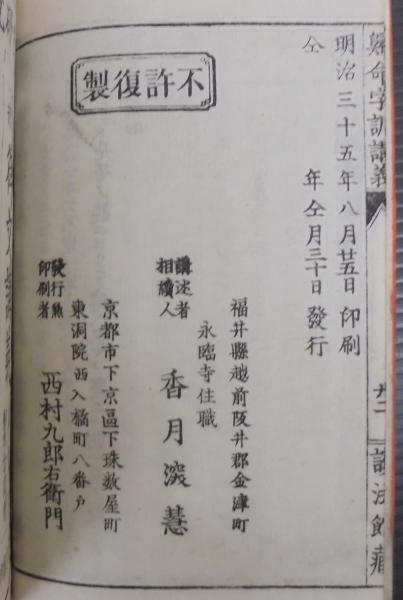 講義
廿一
護法館藏
明治三十五年八月廿五日印刷
仝年仝月三十日發行
不許復製
福井縣越前阪井郡金津町
永臨寺住職
講述者
相續人
香月深慧
京都市下京區下珠数屋町
東洞院西入橘町八番戶
發行兼
印刷者
西村九郎右衞門